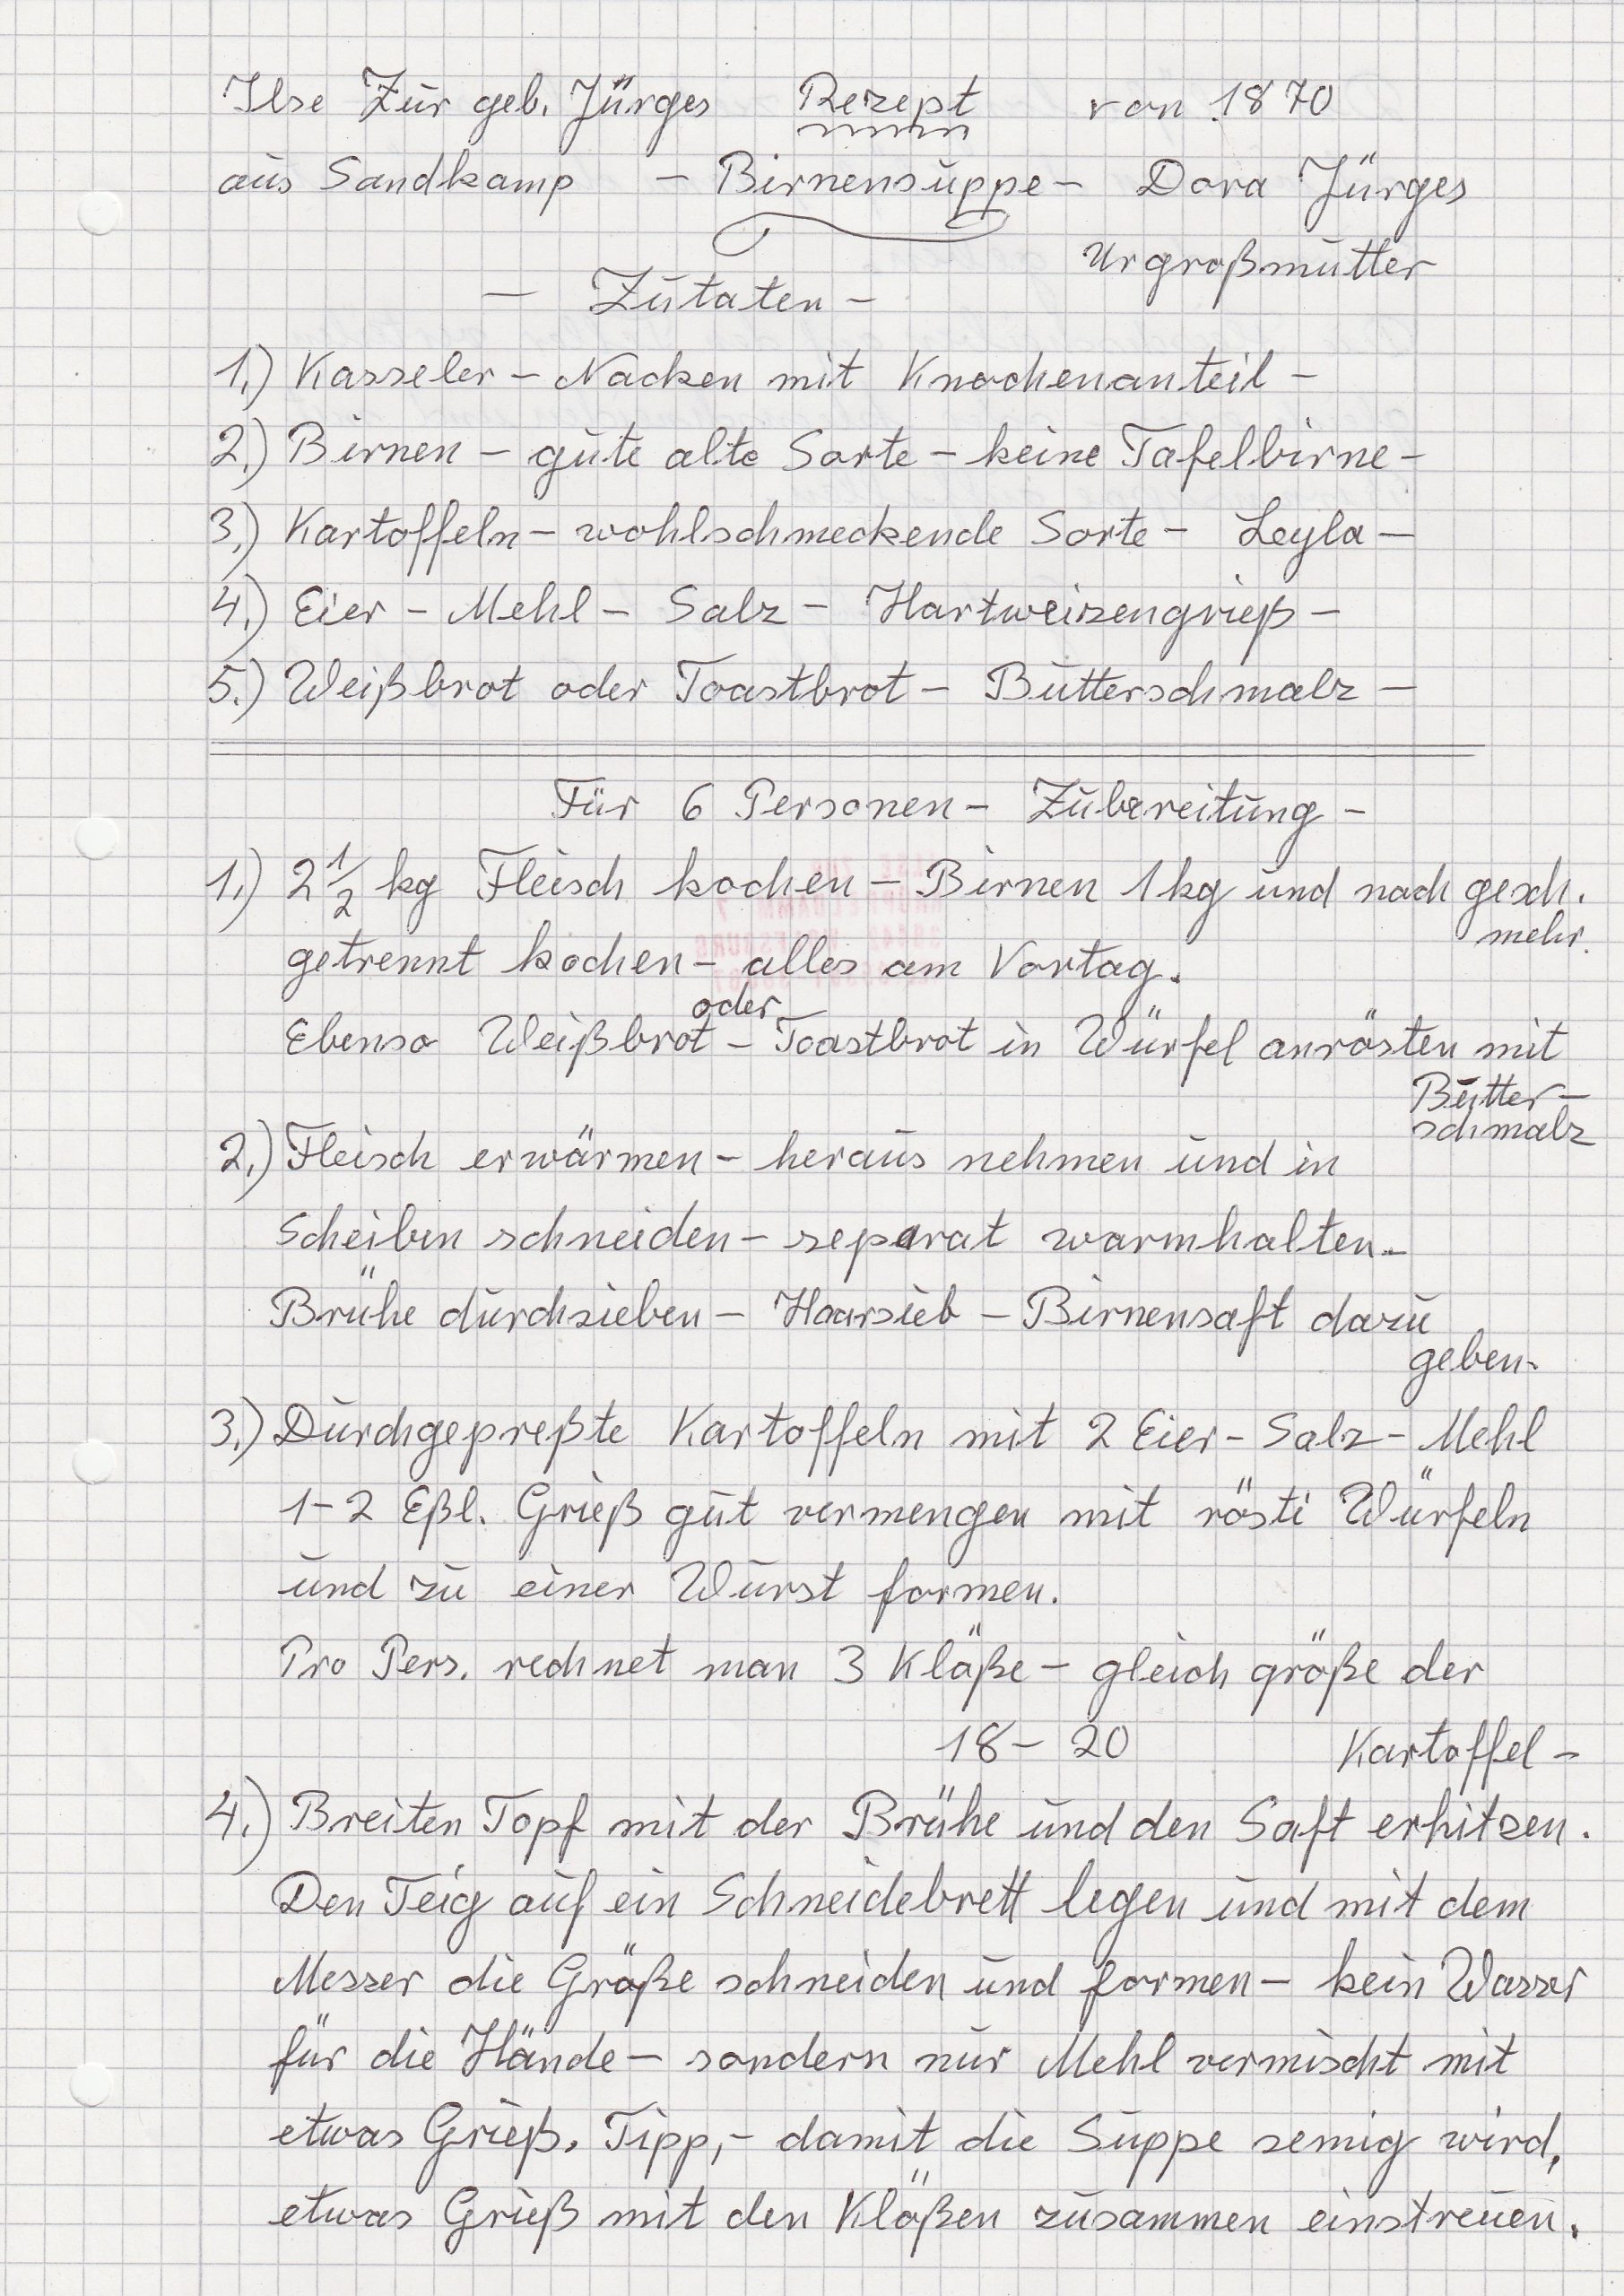 Ilse Zur geb. Jürges Rezept von 1870
aus Sandkamp - Birnensuppe - Dora Jürges
Urgroßmutter
- Zutaten -
1.) Kasseler - Nacken mit Knochenanteil -
2.) Birnen - gute alte Sorte - keine Tafelbirne -
3.) Kartoffeln - wohlschmeckende Sorte - Leyla -
4.) Eier - Mehl - Salz - Hartweizengrieß -
5.) Weißbrot oder Toastbrot - Butterschmalz -
Für 6 Personen - Zubereitung -
1.) 2 1/2 kg Fleisch kochen - Birnen 1 kg und nach gesch.
mehr.
getrennt kochen - alles am Vortag.
oder
Ebenso Weißbrot - Toastbrot in Würfel anrösten mit
Butter-
schmalz
2.) Fleisch erwärmen - heraus nehmen und in
Scheiben schneiden - separat warmhalten -
Brühe durchsieben - Haarsieb - Birnensaft dazu
geben.
3.) Durchgepreßte Kartoffeln mit 2 Eier - Salz - Mehl
1-2 Eßl. Grieß gut vermengen mit rösti Würfeln
und zu einer Wurst formen.
Pro Pers. rechnet man 3 Klöße - gleich größe der
18 - 20 Kartoffel -
4.) Breiten Topf mit der Brühe und den Saft erhitzen.
Den Teig auf ein Schneidebrett legen und mit dem
Messer die Größe schneiden und formen - kein Wasser
für die Hände - sondern nur Mehl vermischt mit
etwas Grieß. Tipp, - damit die Suppe semig wird,
etwas Grieß mit den Klößen zusammen einstreuen.